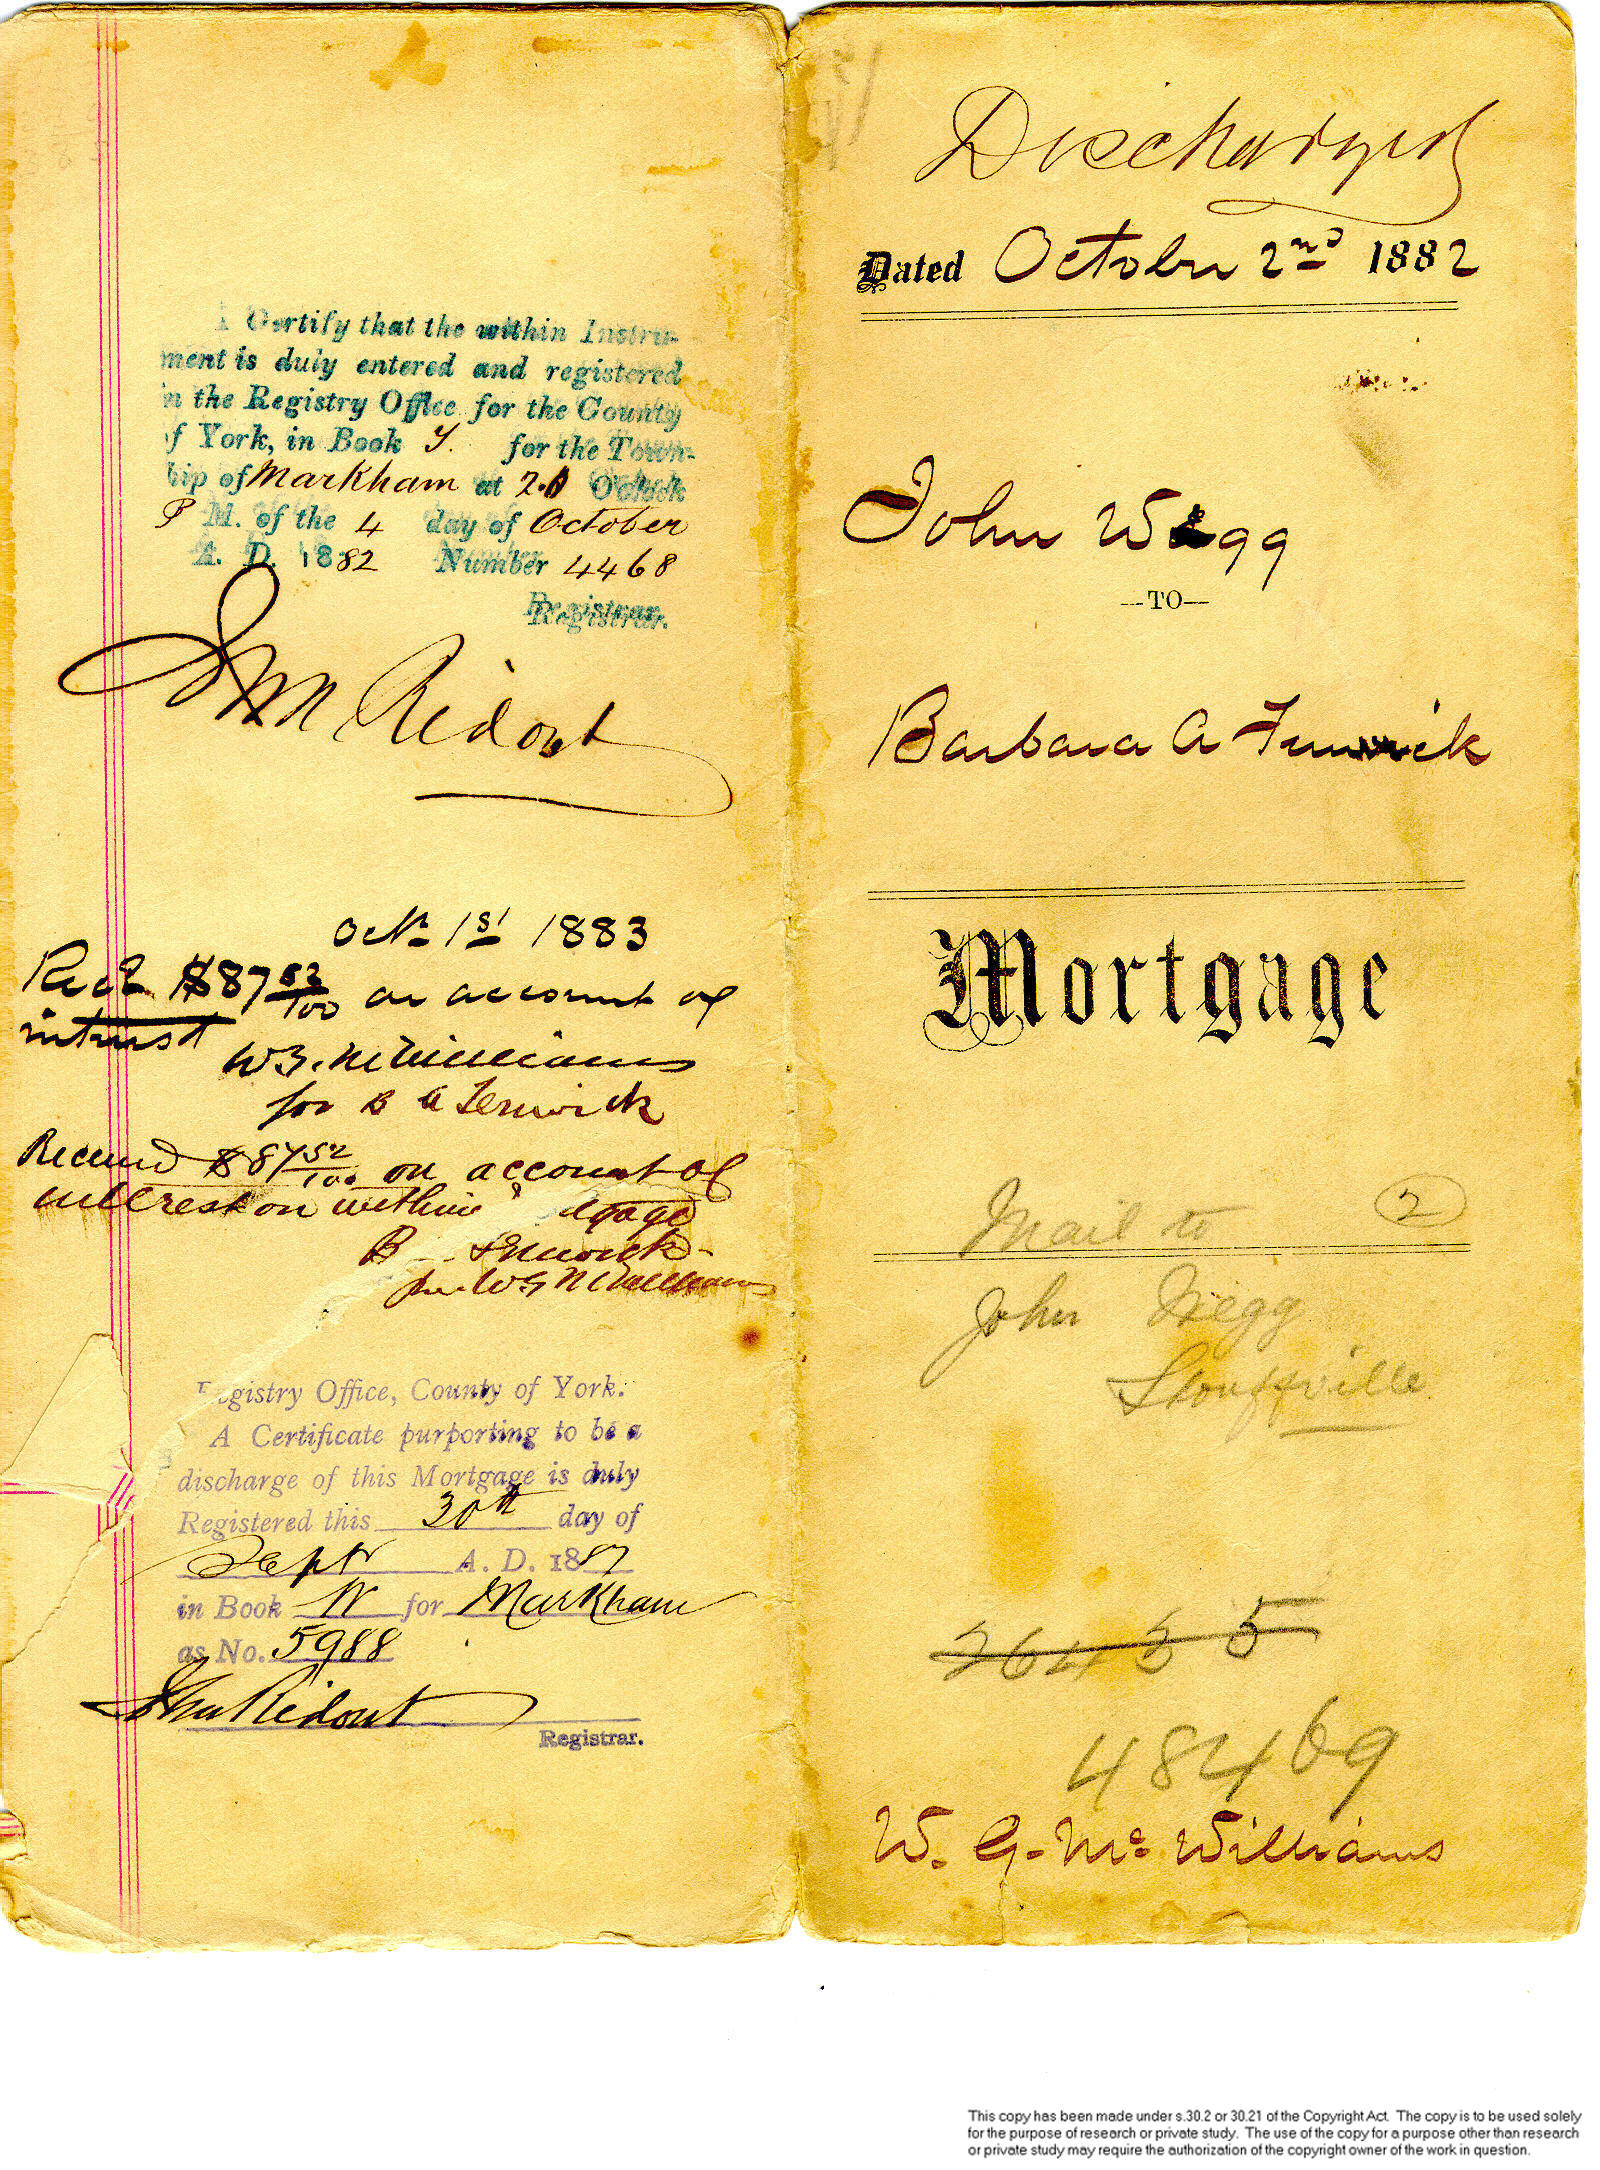 I Certify that the within Instru-
ment is duly entered and registered
in the Registry Office for the County
of York, in Book Y. for the Town-
ship of Markham at 2.0 O'Clock
P M. of the 4 day of October
A. D. 1882 Number 4468
Registrar.
Ridout
Octr 1st 1883
Recd $87 52/100 on account of
interest
W G. McWilliams
for B A Fenwick
Received $87 52/100 on account of
interest on within gage
B Fenwick
per W G McWilliams
Registry Office, County of York.
A Certificate purporting to be a
discharge of this Mortgage is duly
Registered this 30th day of
Sept A. D. 1887
in Book W for Markham
as No. 5988
Jno Ridout
Registrar.
Discharged
Dated October 2nd 1882
John Wegg
—TO—
Barbara A Fenwick
Mortgage
Mail to 2
John Wegg
Stouffville
26435
48469
W. G. Mc Williams
This copy has been made under s.30.2 or 30.21 of the Copyright Act. The copy is to be used solely
for the purpose of research or private study. The use of the copy for a purpose other than research
or private study may require the authorization of the copyright owner of the work in question.